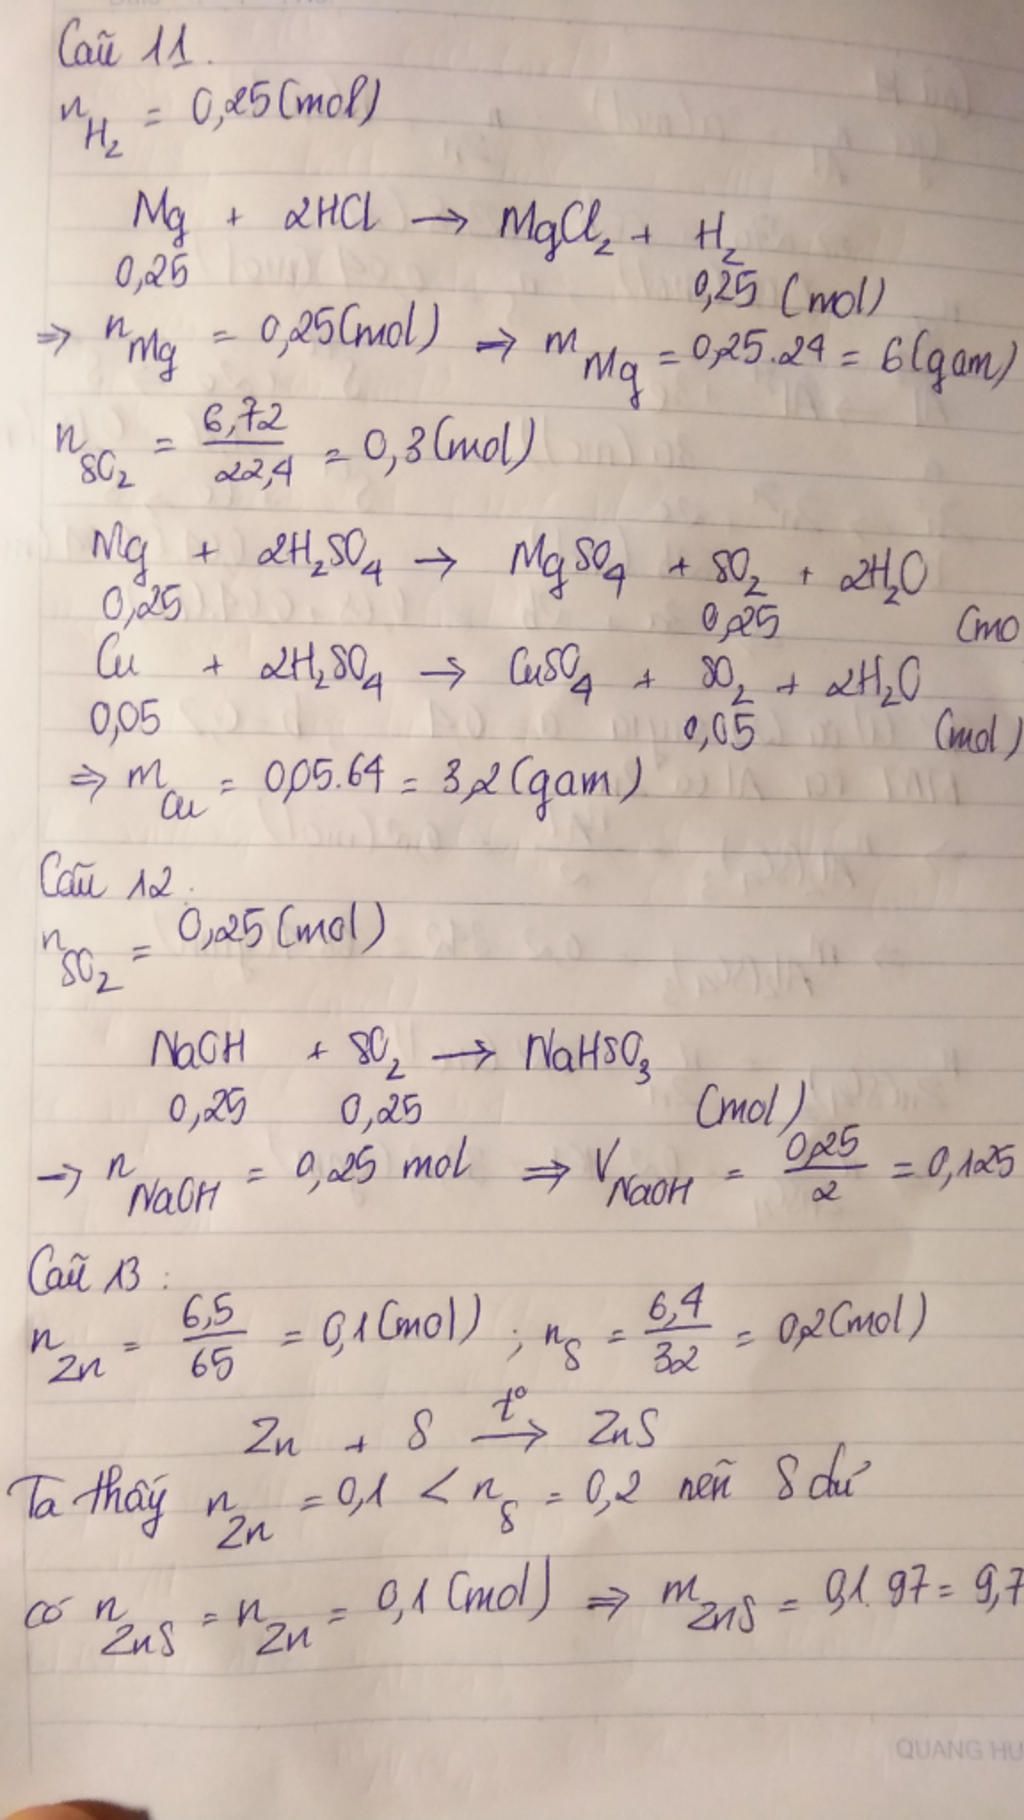 Câu 11.
n H₂ = 0,25(mol)
Mg + 2HCl → MgCl₂ + H₂
0,25 0,25 (mol)
⇒ n Mg = 0,25(mol) ⇒ m Mg = 0,25.24 = 6(gam)
n SO₂ = 6,72/22,4 = 0,3(mol)
Mg + 2H₂SO₄ → MgSO₄ + SO₂ + 2H₂O
0,25 0,25 (mo
Cu + 2H₂SO₄ → CuSO₄ + SO₂ + 2H₂O
0,05 0,05 (mol)
⇒ m Cu = 0,05.64 = 3,2(gam)
Câu 12.
n SO₂ = 0,25(mol)
NaOH + SO₂ → NaHSO₃
0,25 0,25 (mol)
→ n NaOH = 0,25 mol ⇒ V NaOH = 0,25/2 = 0,125
Câu 13:
n Zn = 6,5/65 = 0,1(mol) ; n S = 6,4/32 = 0,2(mol)
Zn + S t°→ ZnS
Ta thấy n Zn = 0,1 < n S = 0,2 nên S dư
có n ZnS = n Zn = 0,1(mol) ⇒ m ZnS = 0,1.97 = 9,7
QUANG HU